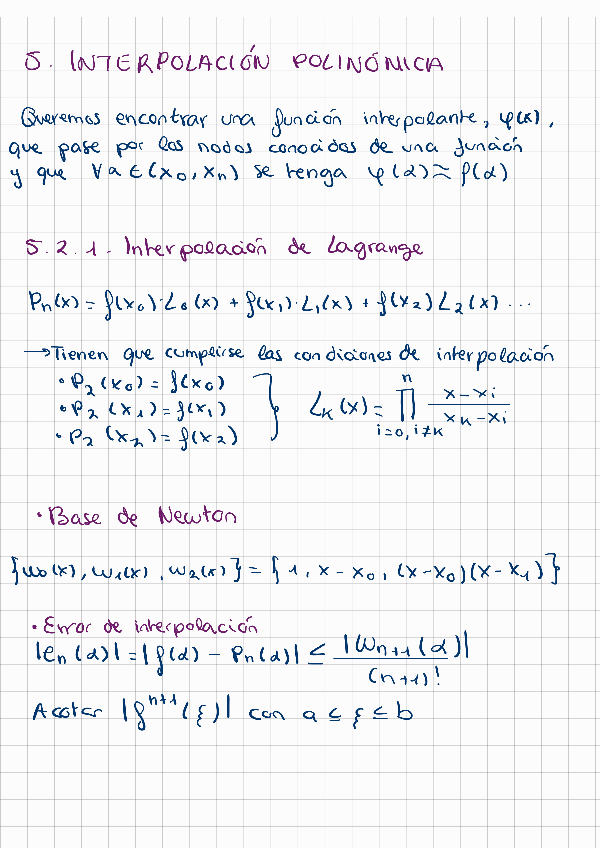 5. INTERPOLACIÓN POLINÓMICA
Queremos encontrar una función interpolante, φ(x),
que pase por los nodos conocidos de una función
y que ∀ α ∈ (x₀, xₙ) se tenga φ(α) ≈ f(α)
5.2.1. Interpolación de Lagrange
Pₙ(x) = f(x₀)·L₀(x) + f(x₁)·L₁(x) + f(x₂) L₂(x) ...
→ Tienen que cumplirse las condiciones de interpolación
• P₂(x₀) = f(x₀)
• P₂(x₁) = f(x₁)
• P₂(x₂) = f(x₂)
} Lₖ(x) = ∏ⁿ_{i=0, i≠k} (x-xᵢ)/(xₖ-xᵢ)
• Base de Newton
{ω₀(x), ω₁(x), ω₂(x)} = {1, x-x₀, (x-x₀)(x-x₁)}
• Error de interpolación
|eₙ(α)| = |f(α) - Pₙ(α)| ≤ |ωₙ₊₁(α)| / (n+1)!
Acotar |fⁿ⁺¹(ξ)| con a ≤ ξ ≤ b